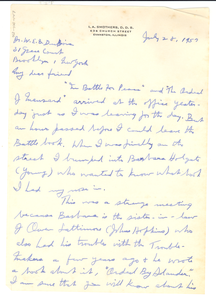 I. A. SNOTHERS, D. D. S.
CHURCH STREET
EVANSTON, ILLINOIS
July 25, 1957
Dr. W. E. B. Du Bois
31 Grace Court
Brooklyn 1, New York
My dear friend
"In Battle For Peace" and "The Ordeal
of Mansart" arrived at the office yester-
day just as I was leaving for the day. But
an hour passed before I could leave the
Battle book. When I was finally on the
street I bumped into Barbara Holgate
(Young) who wanted to know what book
I had my nose in.
This was a strange meeting
because Barbara is the sister-in-law
of Owen Lattimore (John Hopkins) who
also had his trouble with the Trouble-
Makers a few years ago & he wrote
a book about it, "Ordeal By Slander."
I am sure that you will know about his